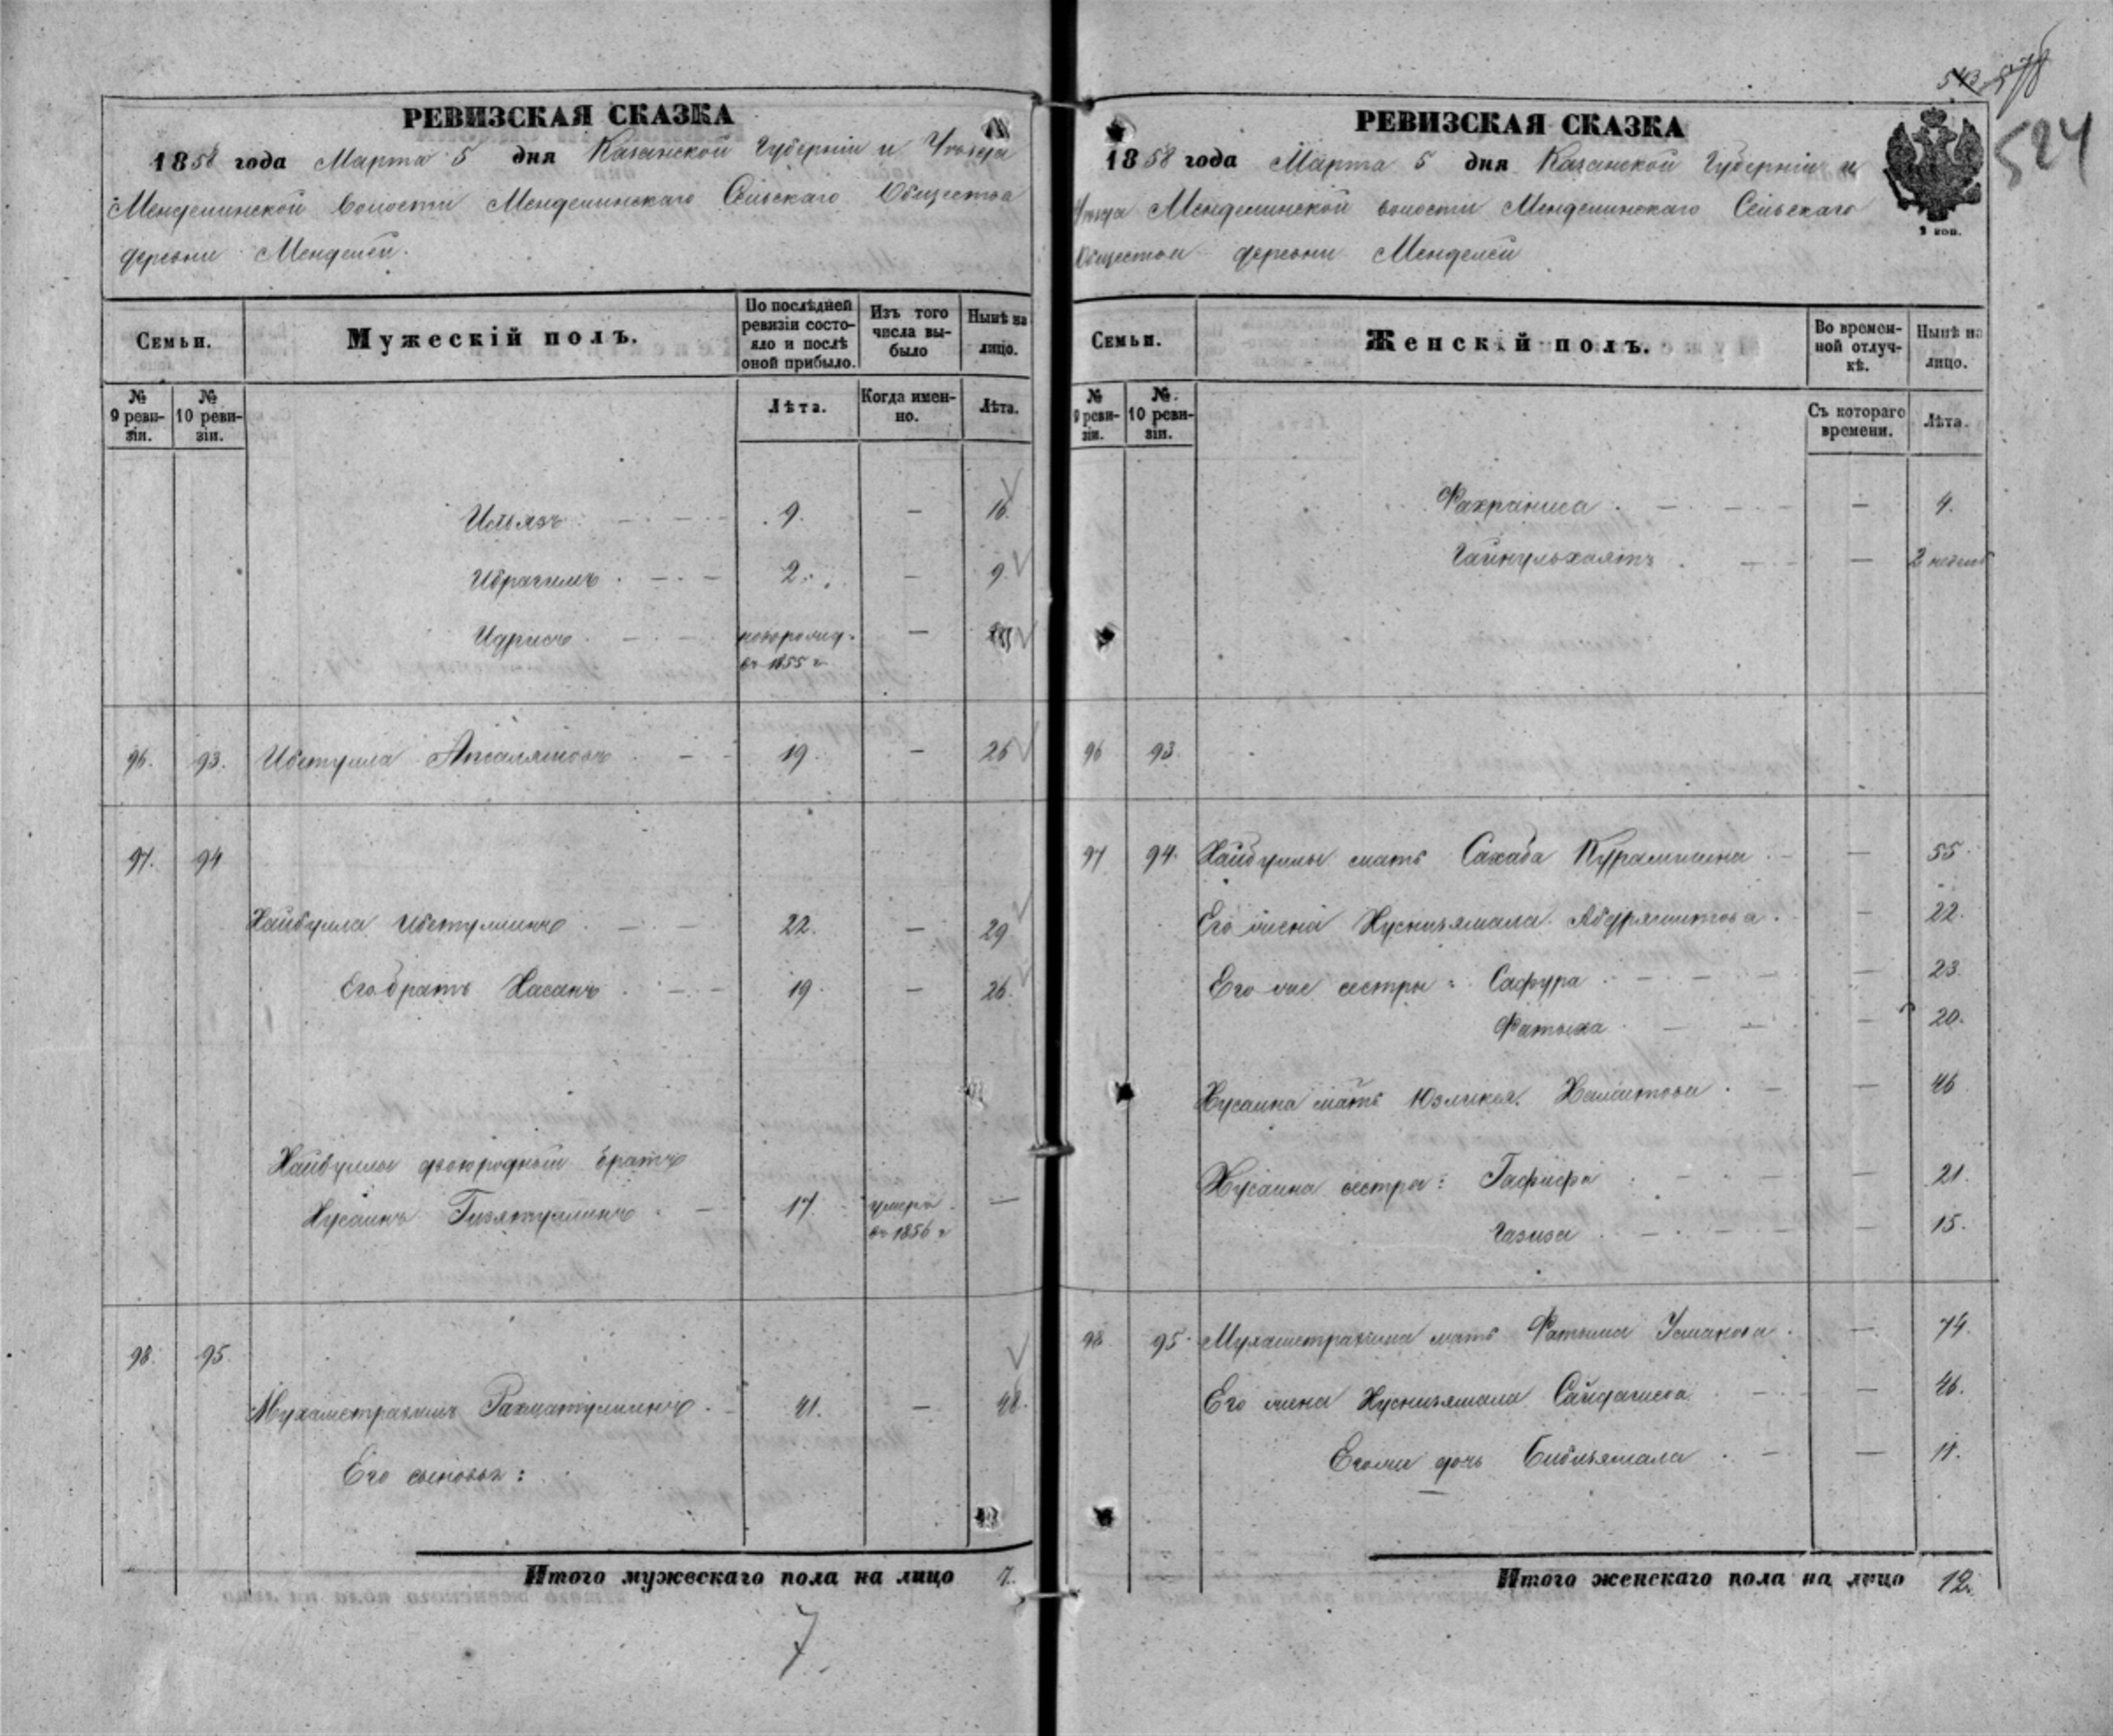 РЕВИЗСКАЯ СКАЗКА
1858 года Марта 5 дня Казанской Губерніи и Уѣзда
Менделинской волости Менделинскаго Сельскаго Общества
деревни Менделей.
Семьи.
Мужескій полъ.
По послѣдней ревизіи состояло и послѣ оной прибыло.
Изъ того числа выбыло
Нынѣ на лицо.
№ 9 ревизіи.
№ 10 ревизіи.
Лѣта.
Когда именно.
Лѣта.
Ильязъ 9. — 16.
Ибрагимъ 2. — 9
Идрисъ новорожд. —
въ 1855 г
96. 93. Ибетулла 19. — 26
97. 94
Хайбулла Ибетуллинъ 22. — 29
Его братъ Хасанъ 19. — 26.
Хайбуллы двоюродный братъ
Хусаинъ Гизятуллинъ 17. умеръ —
въ 1856 г
98. 95.
Мухаметрахимъ Рахматуллинъ 41. — 48.
Его сыновья:
Итого мужескаго пола на лицо 7.
7.
543 578
524
РЕВИЗСКАЯ СКАЗКА
1858 года Марта 5 дня Казанской Губерніи и
Уѣзда Менделинской волости Менделинскаго Сельскаго
Общества деревни Менделей
2 коп.
Семьи.
Женскій полъ.
Во временной отлучкѣ.
Нынѣ на лицо.
№ 9 ревизіи.
№ 10 ревизіи.
Съ котораго времени.
Лѣта.
Фахраниса — 4.
Гайнульхаятъ — 2 недели
96 93.
97 94. Хайбуллы мать Сахаба Курамшина — 55.
Его жена Хуснизямала Абдряшитова — 22.
Его же сестры: Сафура — 23.
Фатыха — 20.
Хусаина мать Юзликея Хамитова — 46
Хусаина сестры: Гафифа — 21.
Газиза — 15.
98 95. Мухаметрахима мать Фатыма Усманова — 74.
Его жена Хуснизямала Сайдашева — 46.
Его же дочь Бибизямала — 11.
Итого женскаго пола на лицо 12.